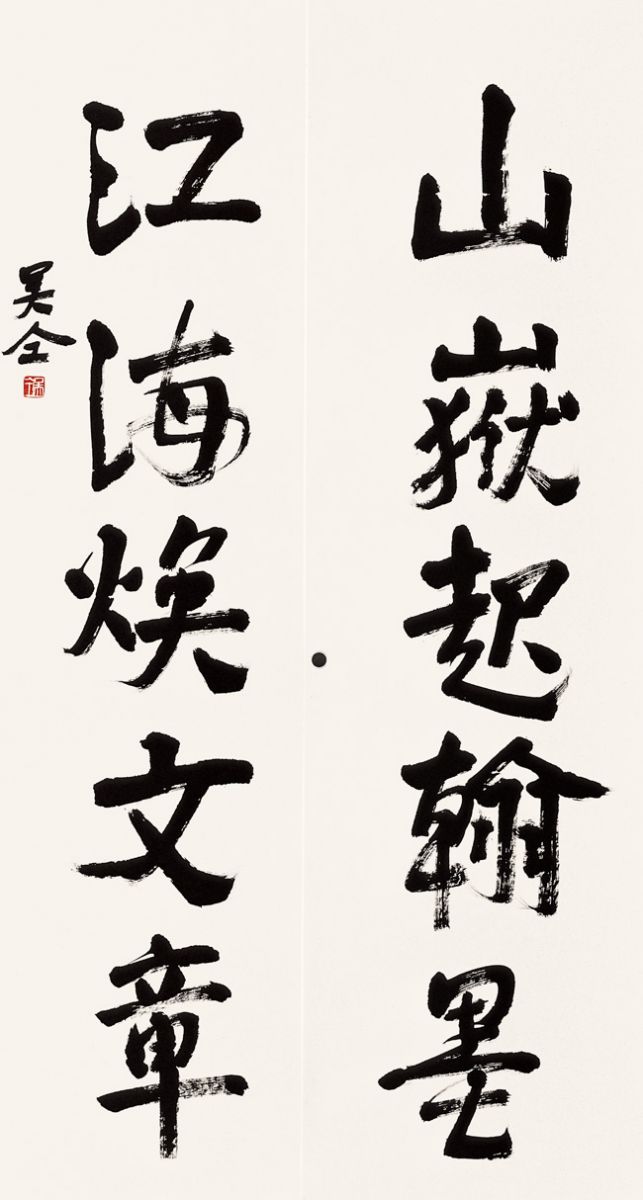 山嶽起翰墨
江海煥文章
吴仝